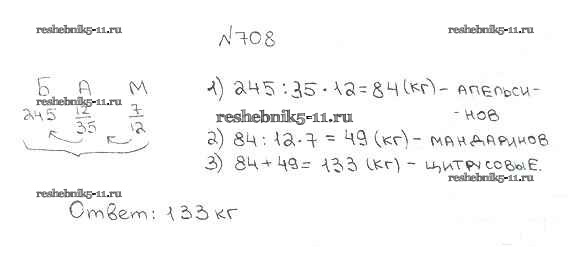 reshebnik5-11.ru
reshebnik5-11.ru
№708
Б А М
reshebnik5-11.ru
245 12/35 7/12
1) 245 : 35 · 12 = 84 (кг) - АПЕЛЬСИ-
-НОВ
reshebnik5-11.ru
2) 84 : 12 · 7 = 49 (кг) - МАНДАРИНОВ
3) 84 + 49 = 133 (кг) - ЦИТРУСОВЫЕ.
reshebnik5-11.ru
reshebnik5-11.ru
Ответ: 133 кг